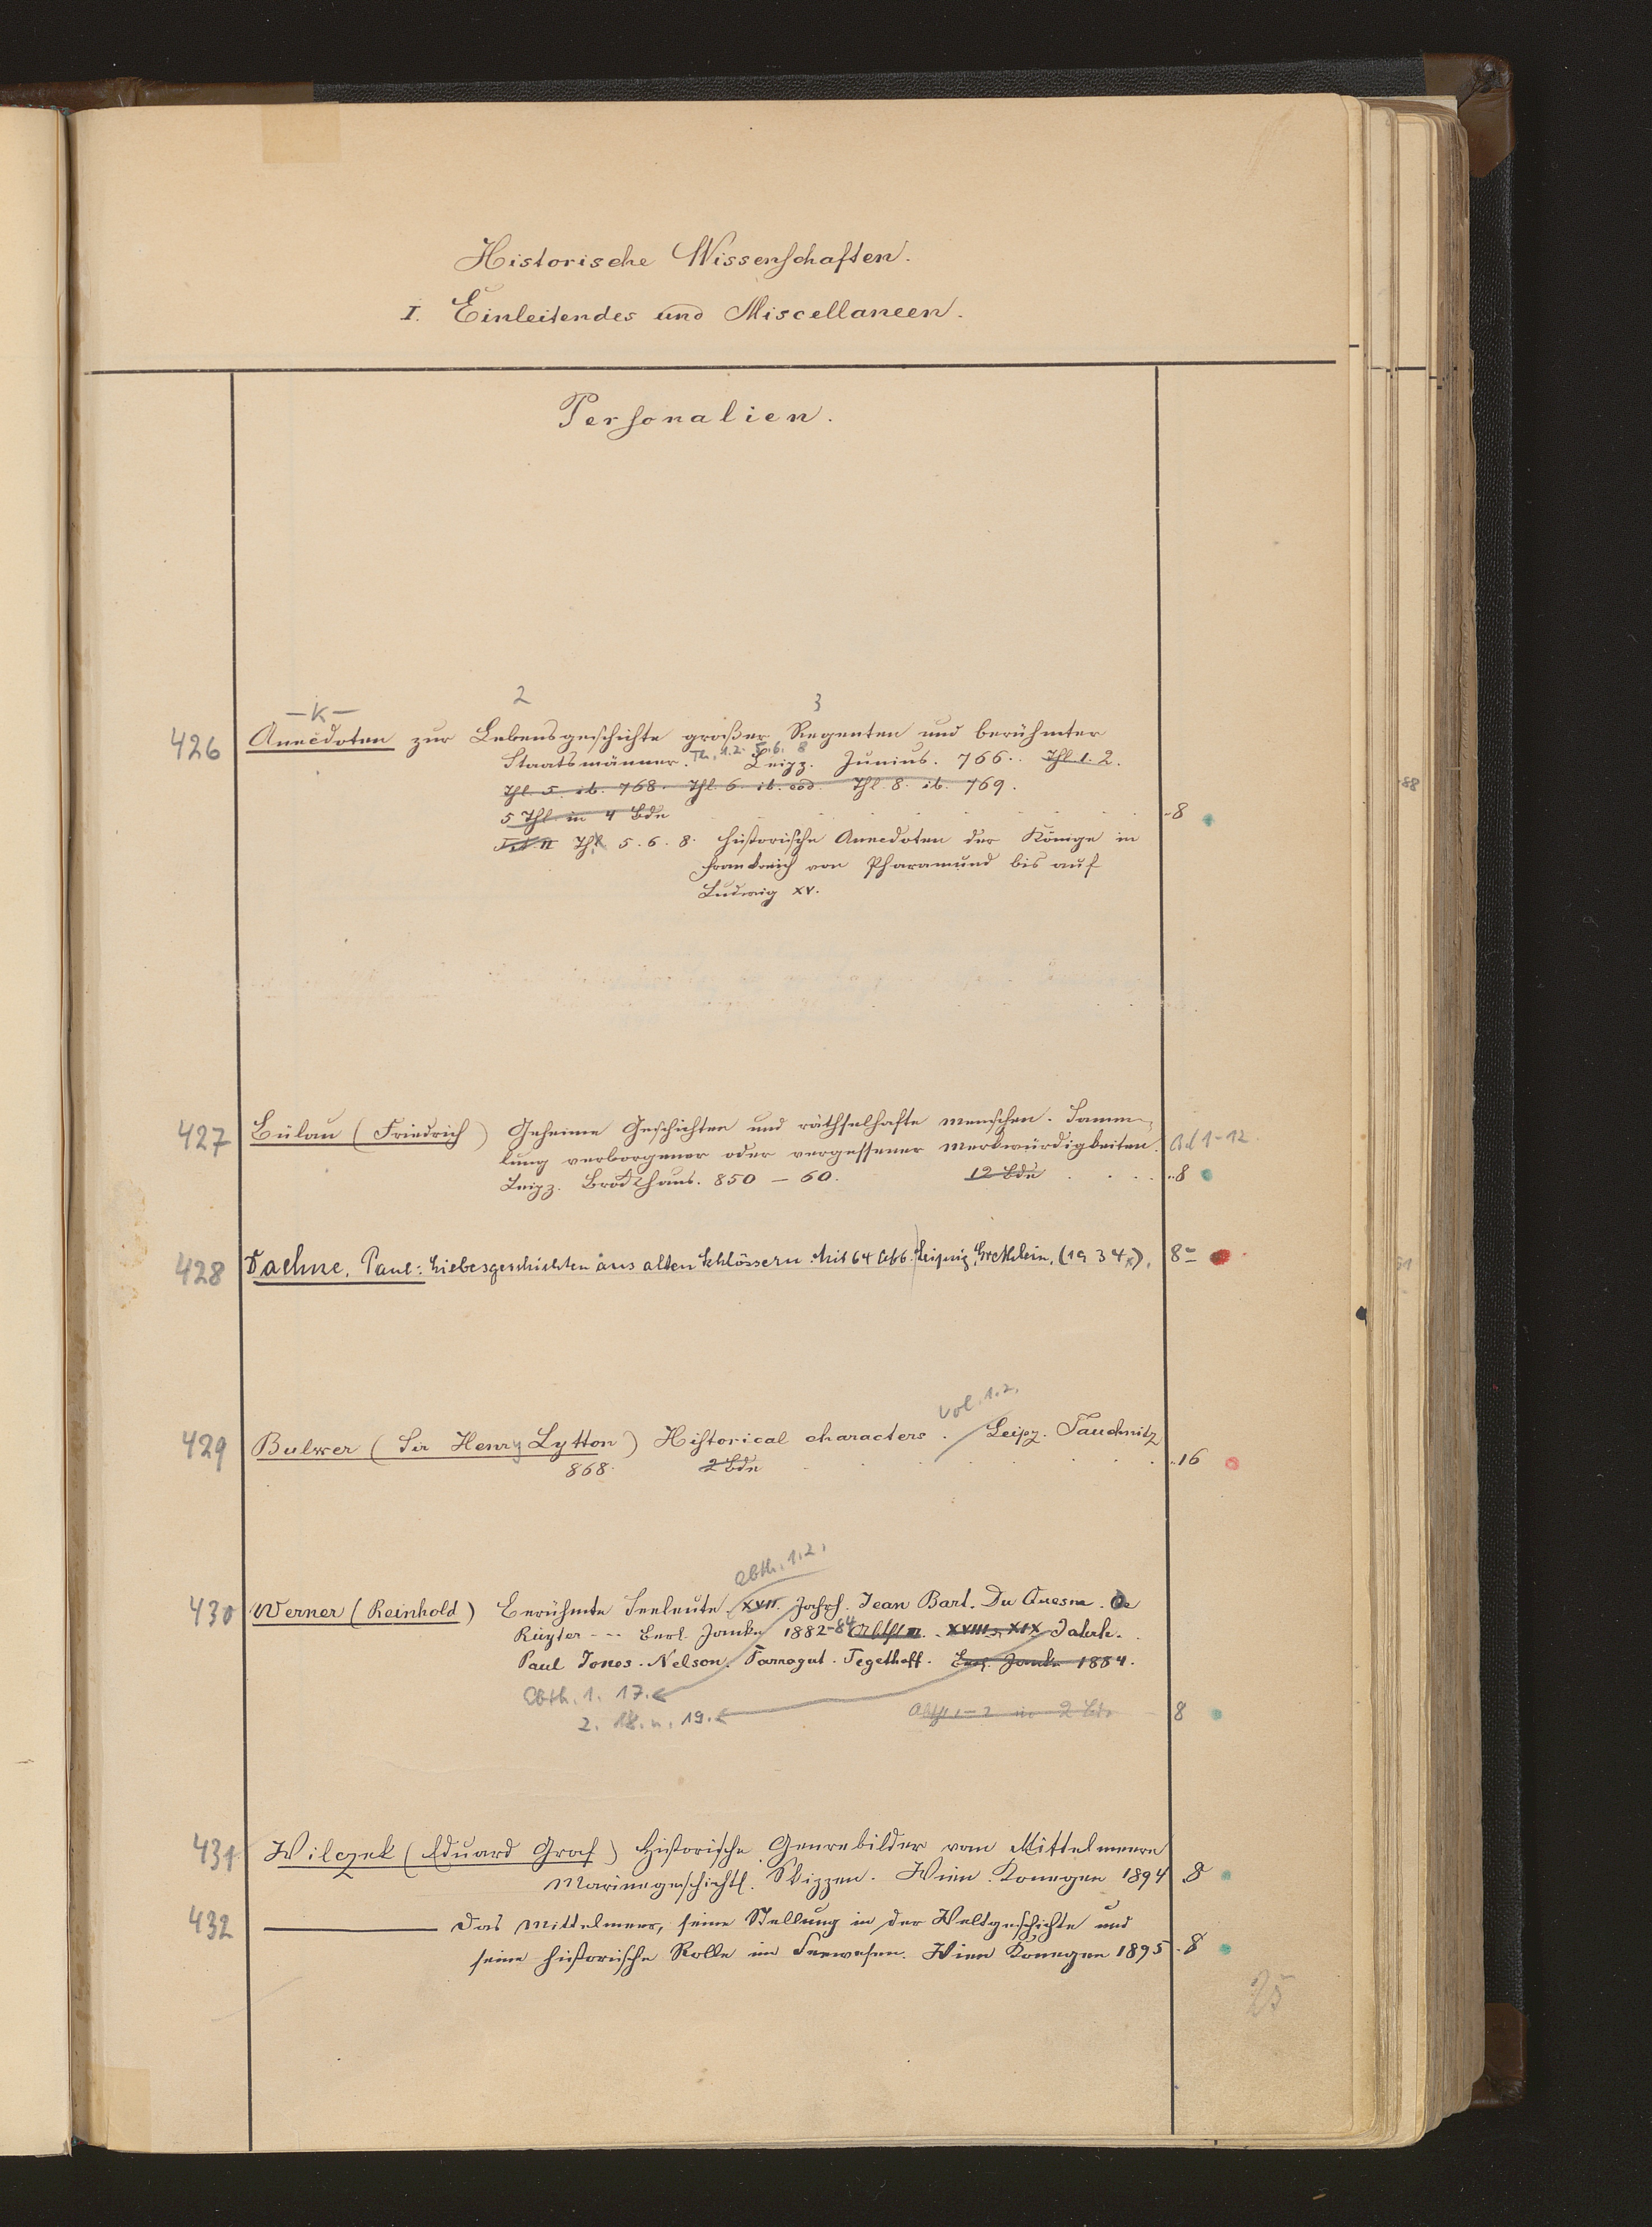 Historische Wissenschaften.
I. Einleitendes und Miscellaneen.
Personalien.
— K — 2 3
426 Anecdoten zur Lebensgeschichte großer Regenten und berühmter
Th. 1.2. 5. 6. 8
Staatsmänner. Leipz. Junius. 766. Thl. 1. 2.
Thl. 5. ib. 768. Thl. 6. ib. eod. Thl. 8. ib. 769.
5 Thl. in 4 Bde 8
Thl. 5. 6. 8. Historische Anecdoten der Könige in
Frankreich von Pharamund bis auf
Ludwig XV.
427 Bülau (Friedrich) Geheime Geschichten und räthselhafte Menschen. Samm-
lung verborgener oder vergessener Merkwürdigkeiten. Bd 1-12.
Leipz. Brockhaus. 850 – 60. 12 Bde 8
428 Daehne, Paul: Liebesgeschichten aus alten Schlössern. Mit 64 Abb. Leipzig, Grethlein, (1934). 8-
Vol. 1.2.
429 Bulwer (Sir Henry Lytton) Historical characters. Leipz. Tauchnitz
868. 2 Bde 16
Abth. 1.2.
430 Werner (Reinhold) Berühmte Seeleute XVII. Jahrh. Jean Bart. Du Quesne. De
Ruyter - - Berl. Janke 1882-84 Abthl II. XVIII u. XIX Jahrh.
Paul Jones. Nelson. Farragut. Tegethoff. Berl. Janke 1884.
Abth. 1. 17.
2. 18. u. 19. Abth 1-2 in 2 Bde 8
431 Wilczek (Eduard Graf) Historische Genrebilder vom Mittelmeere
Marinegeschichtl. Skizzen. Wien. Konegen 1894 8
432 ——— Das Mittelmeer, seine Stellung in der Weltgeschichte und
seine historische Rolle im Seewesen. Wien Konegen 1895. 8
25
88